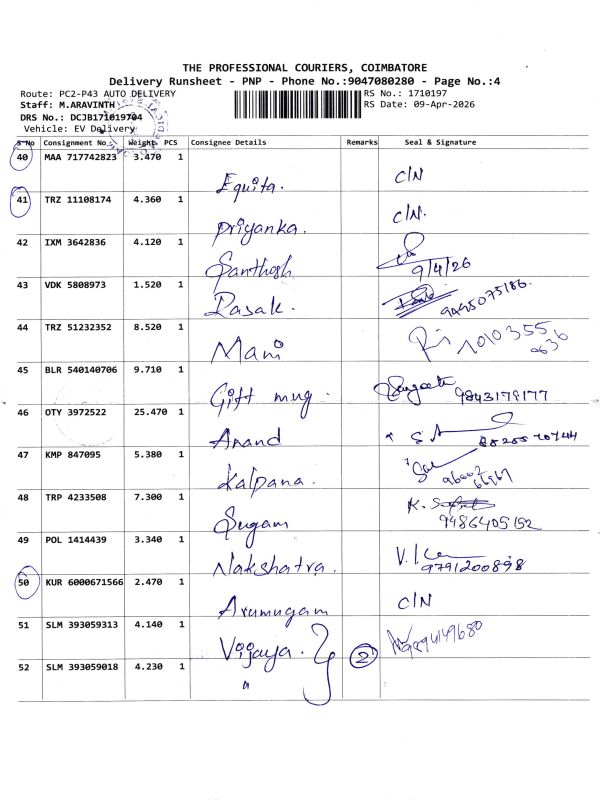 THE PROFESSIONAL COURIERS, COIMBATORE
Delivery Runsheet - PNP - Phone No.:9047080280 - Page No.:4
Route: PC2-P43 AUTO DELIVERY RS No.: 1710197
Staff: M.ARAVINTH RS Date: 09-Apr-2026
DRS No.: DCJB171019704
Vehicle: EV Delivery
S No Consignment No Weight PCS Consignee Details Remarks Seal & Signature
40 MAA 717742823 3.470 1
Equita. C/N
41 TRZ 11108174 4.360 1
Priyanka. C/N.
42 IXM 3642836 4.120 1
Santhosh 9/4/26
43 VDK 5808973 1.520 1
Rasak. 9495075186
44 TRZ 51232352 8.520 1
Mani
45 BLR 540140706 9.710 1
Gift mug. 9843179177
46 OTY 3972522 25.470 1
Anand
47 KMP 847095 5.380 1
Kalpana.
48 TRP 4233508 7.300 1
Sugam 9486405152
49 POL 1414439 3.340 1
Nakshatra. 9791200898
50 KUR 6000671566 2.470 1
Arumugam C/N
51 SLM 393059313 4.140 1
Vijaya. 2 9894149680
52 SLM 393059018 4.230 1
"